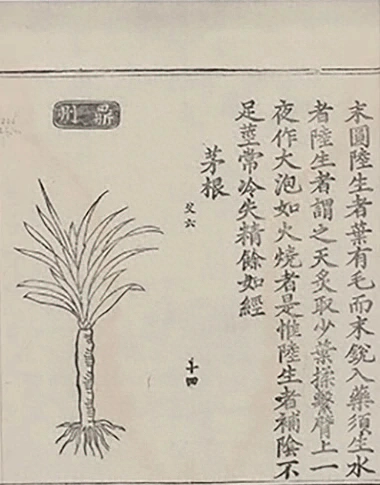 末圓陸生者葉有毛而末銳入藥須生水
者陸生者謂之天炙取少葉揉繫臂上一
夜作大泡如火燒者是惟陸生者補陰不
足莖常冷失精餘如經
茅根
十四
鼎州